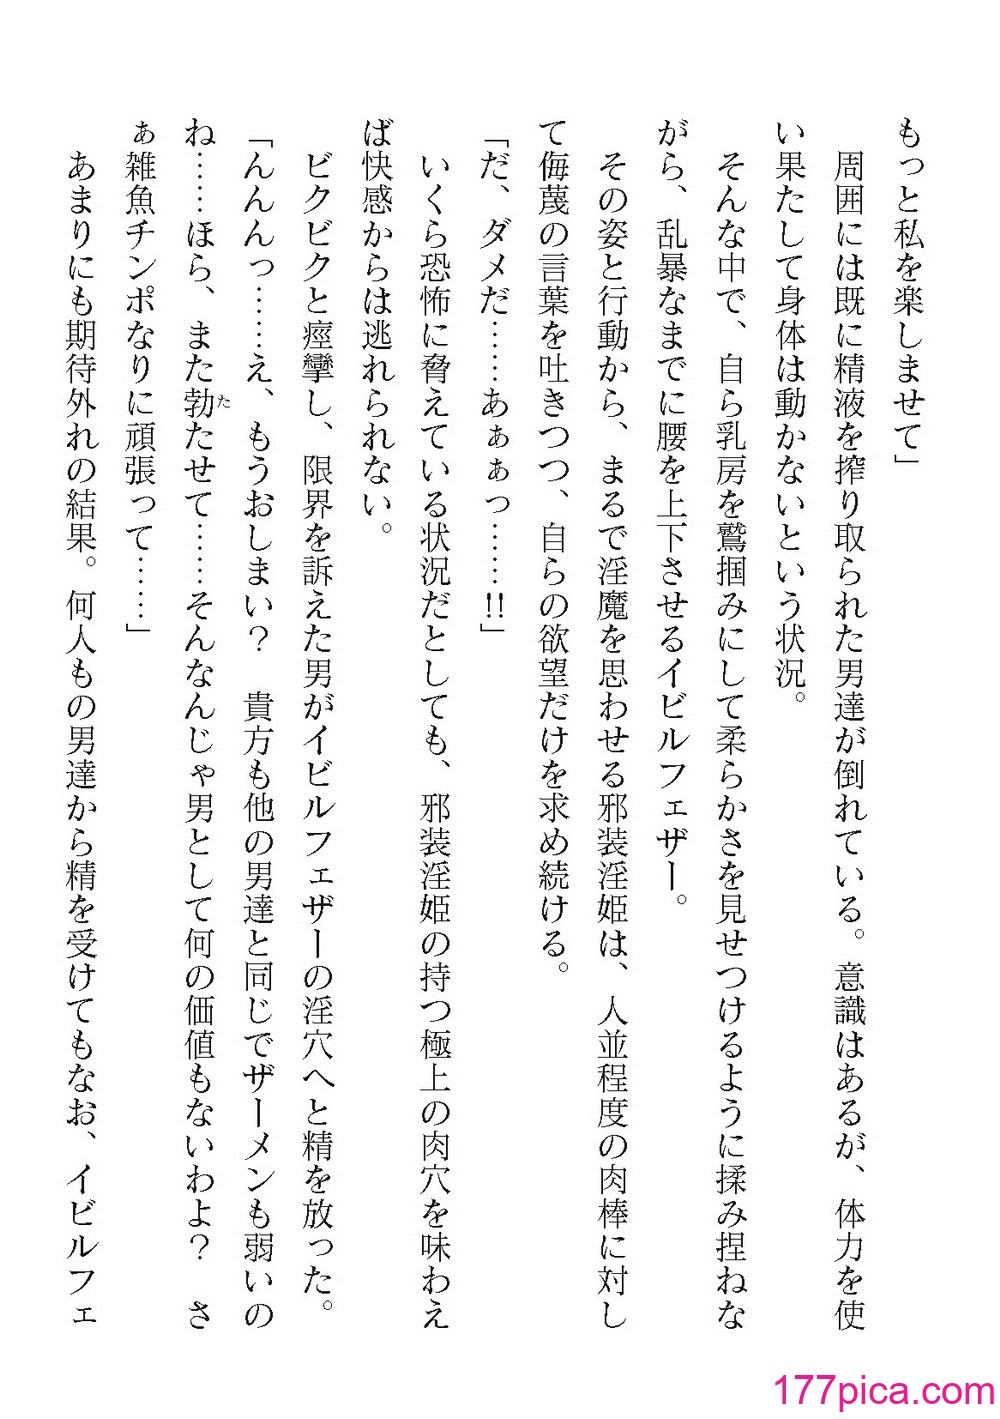 もっと私を楽しませて」
　周囲には既に精液を搾り取られた男達が倒れている。意識はあるが、体力を使
い果たして身体は動かないという状況。
　そんな中で、自ら乳房を鷲掴みにして柔らかさを見せつけるように揉み捏ねな
がら、乱暴なまでに腰を上下させるイビルフェザー。
　その姿と行動から、まるで淫魔を思わせる邪装淫姫は、人並程度の肉棒に対し
て侮蔑の言葉を吐きつつ、自らの欲望だけを求め続ける。
「だ、ダメだ……あぁぁっ……!!」
　いくら恐怖に脅えている状況だとしても、邪装淫姫の持つ極上の肉穴を味わえ
ば快感からは逃れられない。
　ビクビクと痙攣し、限界を訴えた男がイビルフェザーの淫穴へと精を放った。
「んんんっ……え、もうおしまい？　貴方も他の男達と同じでザーメンも弱いの
ね……ほら、また勃たせて……そんなんじゃ男として何の価値もないわよ？　さ
ぁ雑魚チンポなりに頑張って……」
　あまりにも期待外れの結果。何人もの男達から精を受けてもなお、イビルフェ
177pica.com